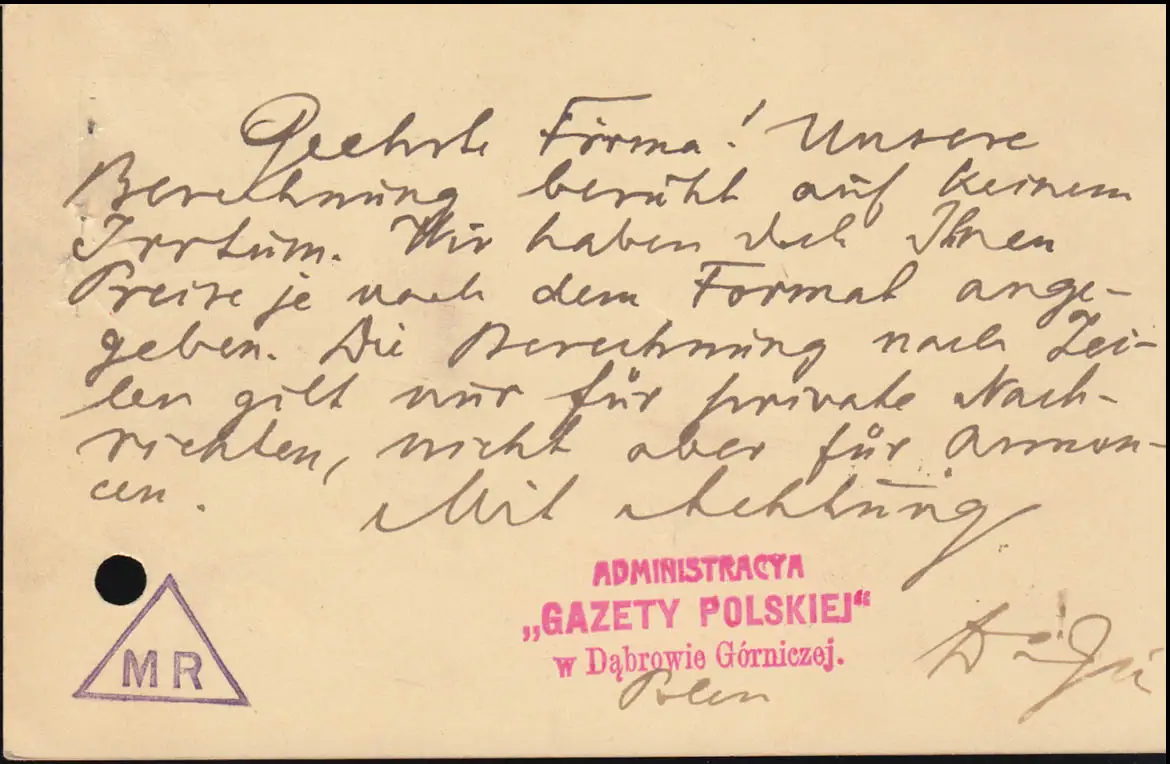 Geehrte Firma! Unsere
Berechnung beruht auf keinem
Irrtum. Wir haben doch Ihnen
Preise je nach dem Format ange-
geben. Die Berechnung nach Zei-
len gilt nur für private Nach-
richten, nicht aber für Annon-
cen.
Mit Achtung
ADMINISTRACYA
„GAZETY POLSKIEJ“
w Dąbrowie Górniczej.
Polen
MR